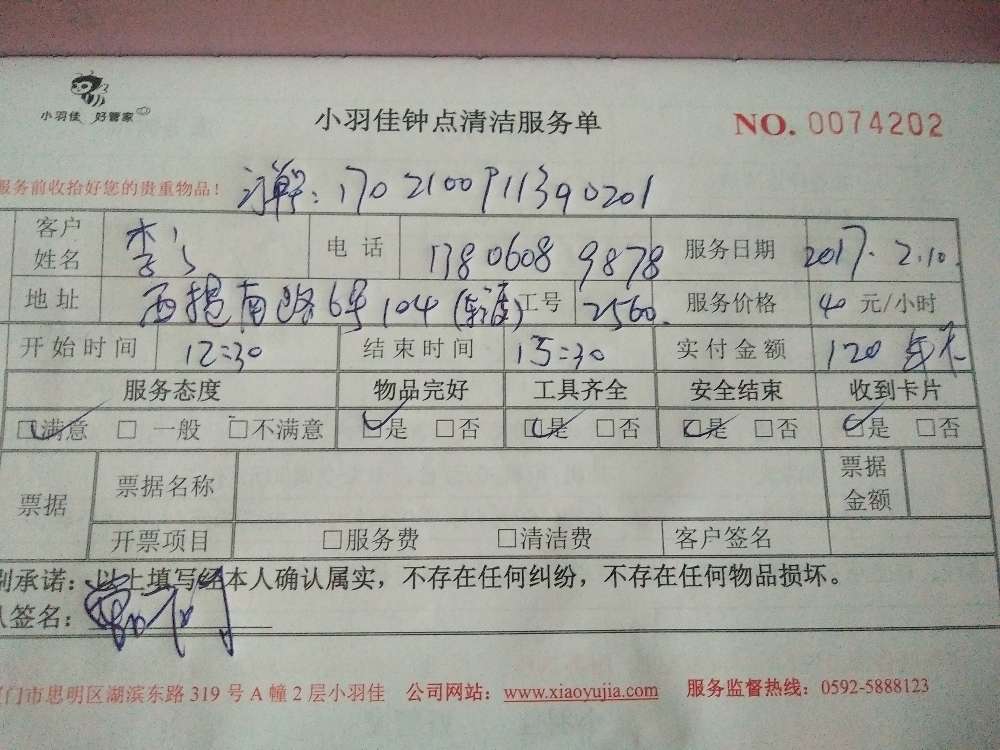 小羽佳 好管家
小羽佳钟点清洁服务单
NO. 0074202
服务前收拾好您的贵重物品!
订单: 17021009711390201
客户姓名 李 电话 13806089878 服务日期 2017.2.10.
地址 西堤南路6号104 工号 2560. 服务价格 40 元/小时
开始时间 12:30 结束时间 15:30 实付金额 120
服务态度 物品完好 工具齐全 安全结束 收到卡片
□满意 □一般 □不满意 □是 □否 □是 □否 □是 □否 □是 □否
票据 票据名称 票据金额
开票项目 □服务费 □清洁费 客户签名
承诺:以上填写经本人确认属实,不存在任何纠纷,不存在任何物品损坏。
签名:
门市思明区湖滨东路 319 号 A 幢 2 层小羽佳 公司网站:www.xiaoyujia.com 服务监督热线:0592-5888123